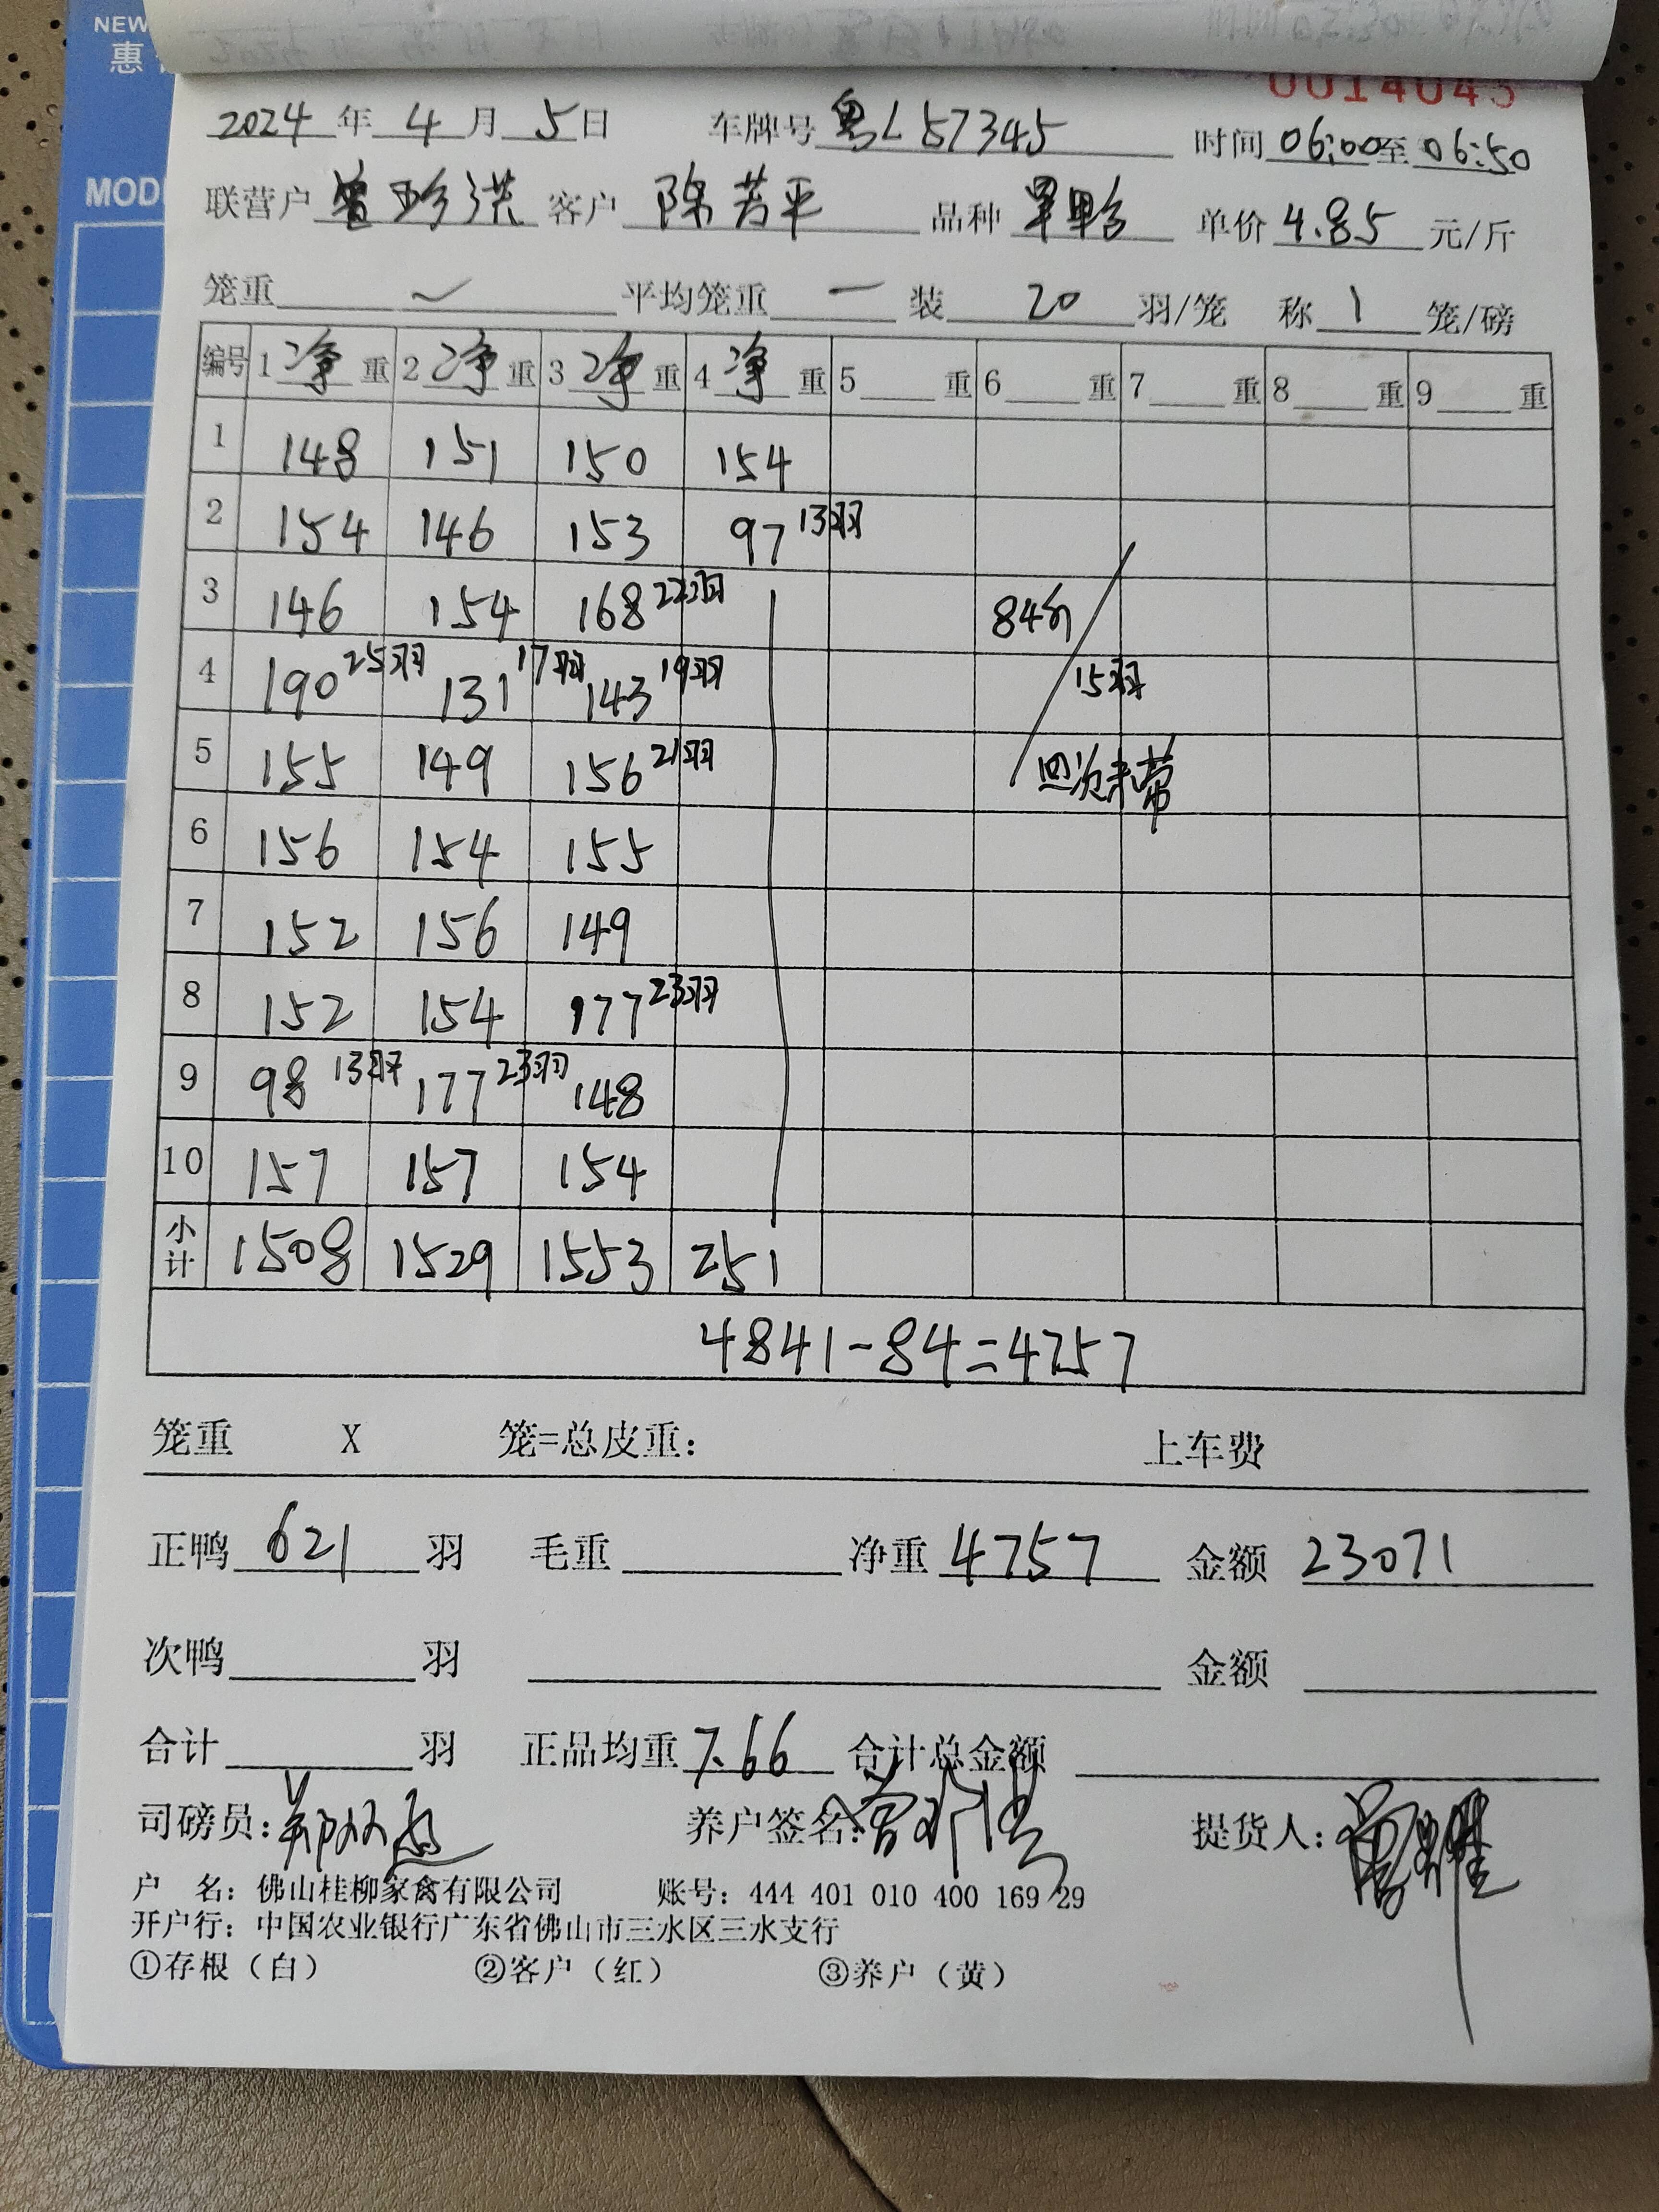 NEW
惠
MODE
0014045
2024 年 4 月 5 日 车牌号 粤L57345 时间 06:00 至 06:50
联营户 曾珍洪 客户 陈芳平 品种 单价 4.85 元/斤
笼重 ✓ 平均笼重 一 装 20 羽/笼 称 1 笼/磅
编号 1 净 重 2 净 重 3 净 重 4 净 重 5 重 6 重 7 重 8 重 9 重
1 148 151 150 154
2 154 146 153 97 13羽
3 146 154 168 22羽 84斤
4 190 25羽 131 17羽 143 19羽 15羽
5 155 149 156 21羽 次未带
6 156 154 155
7 152 156 149
8 152 154 177 23羽
9 98 13羽 177 23羽 148
10 157 157 154
小计 1508 1529 1553 251
4841-84=4757
笼重 X 笼=总皮重: 上车费
正鸭 621 羽 毛重 净重 4757 金额 23071
次鸭 羽 金额
合计 羽 正品均重 7.66 合计总金额
司磅员: 养户签名: 提货人:
户 名: 佛山桂柳家禽有限公司 账号: 444 401 010 400 169 29
开户行: 中国农业银行广东省佛山市三水区三水支行
①存根（白） ②客户（红） ③养户（黄）